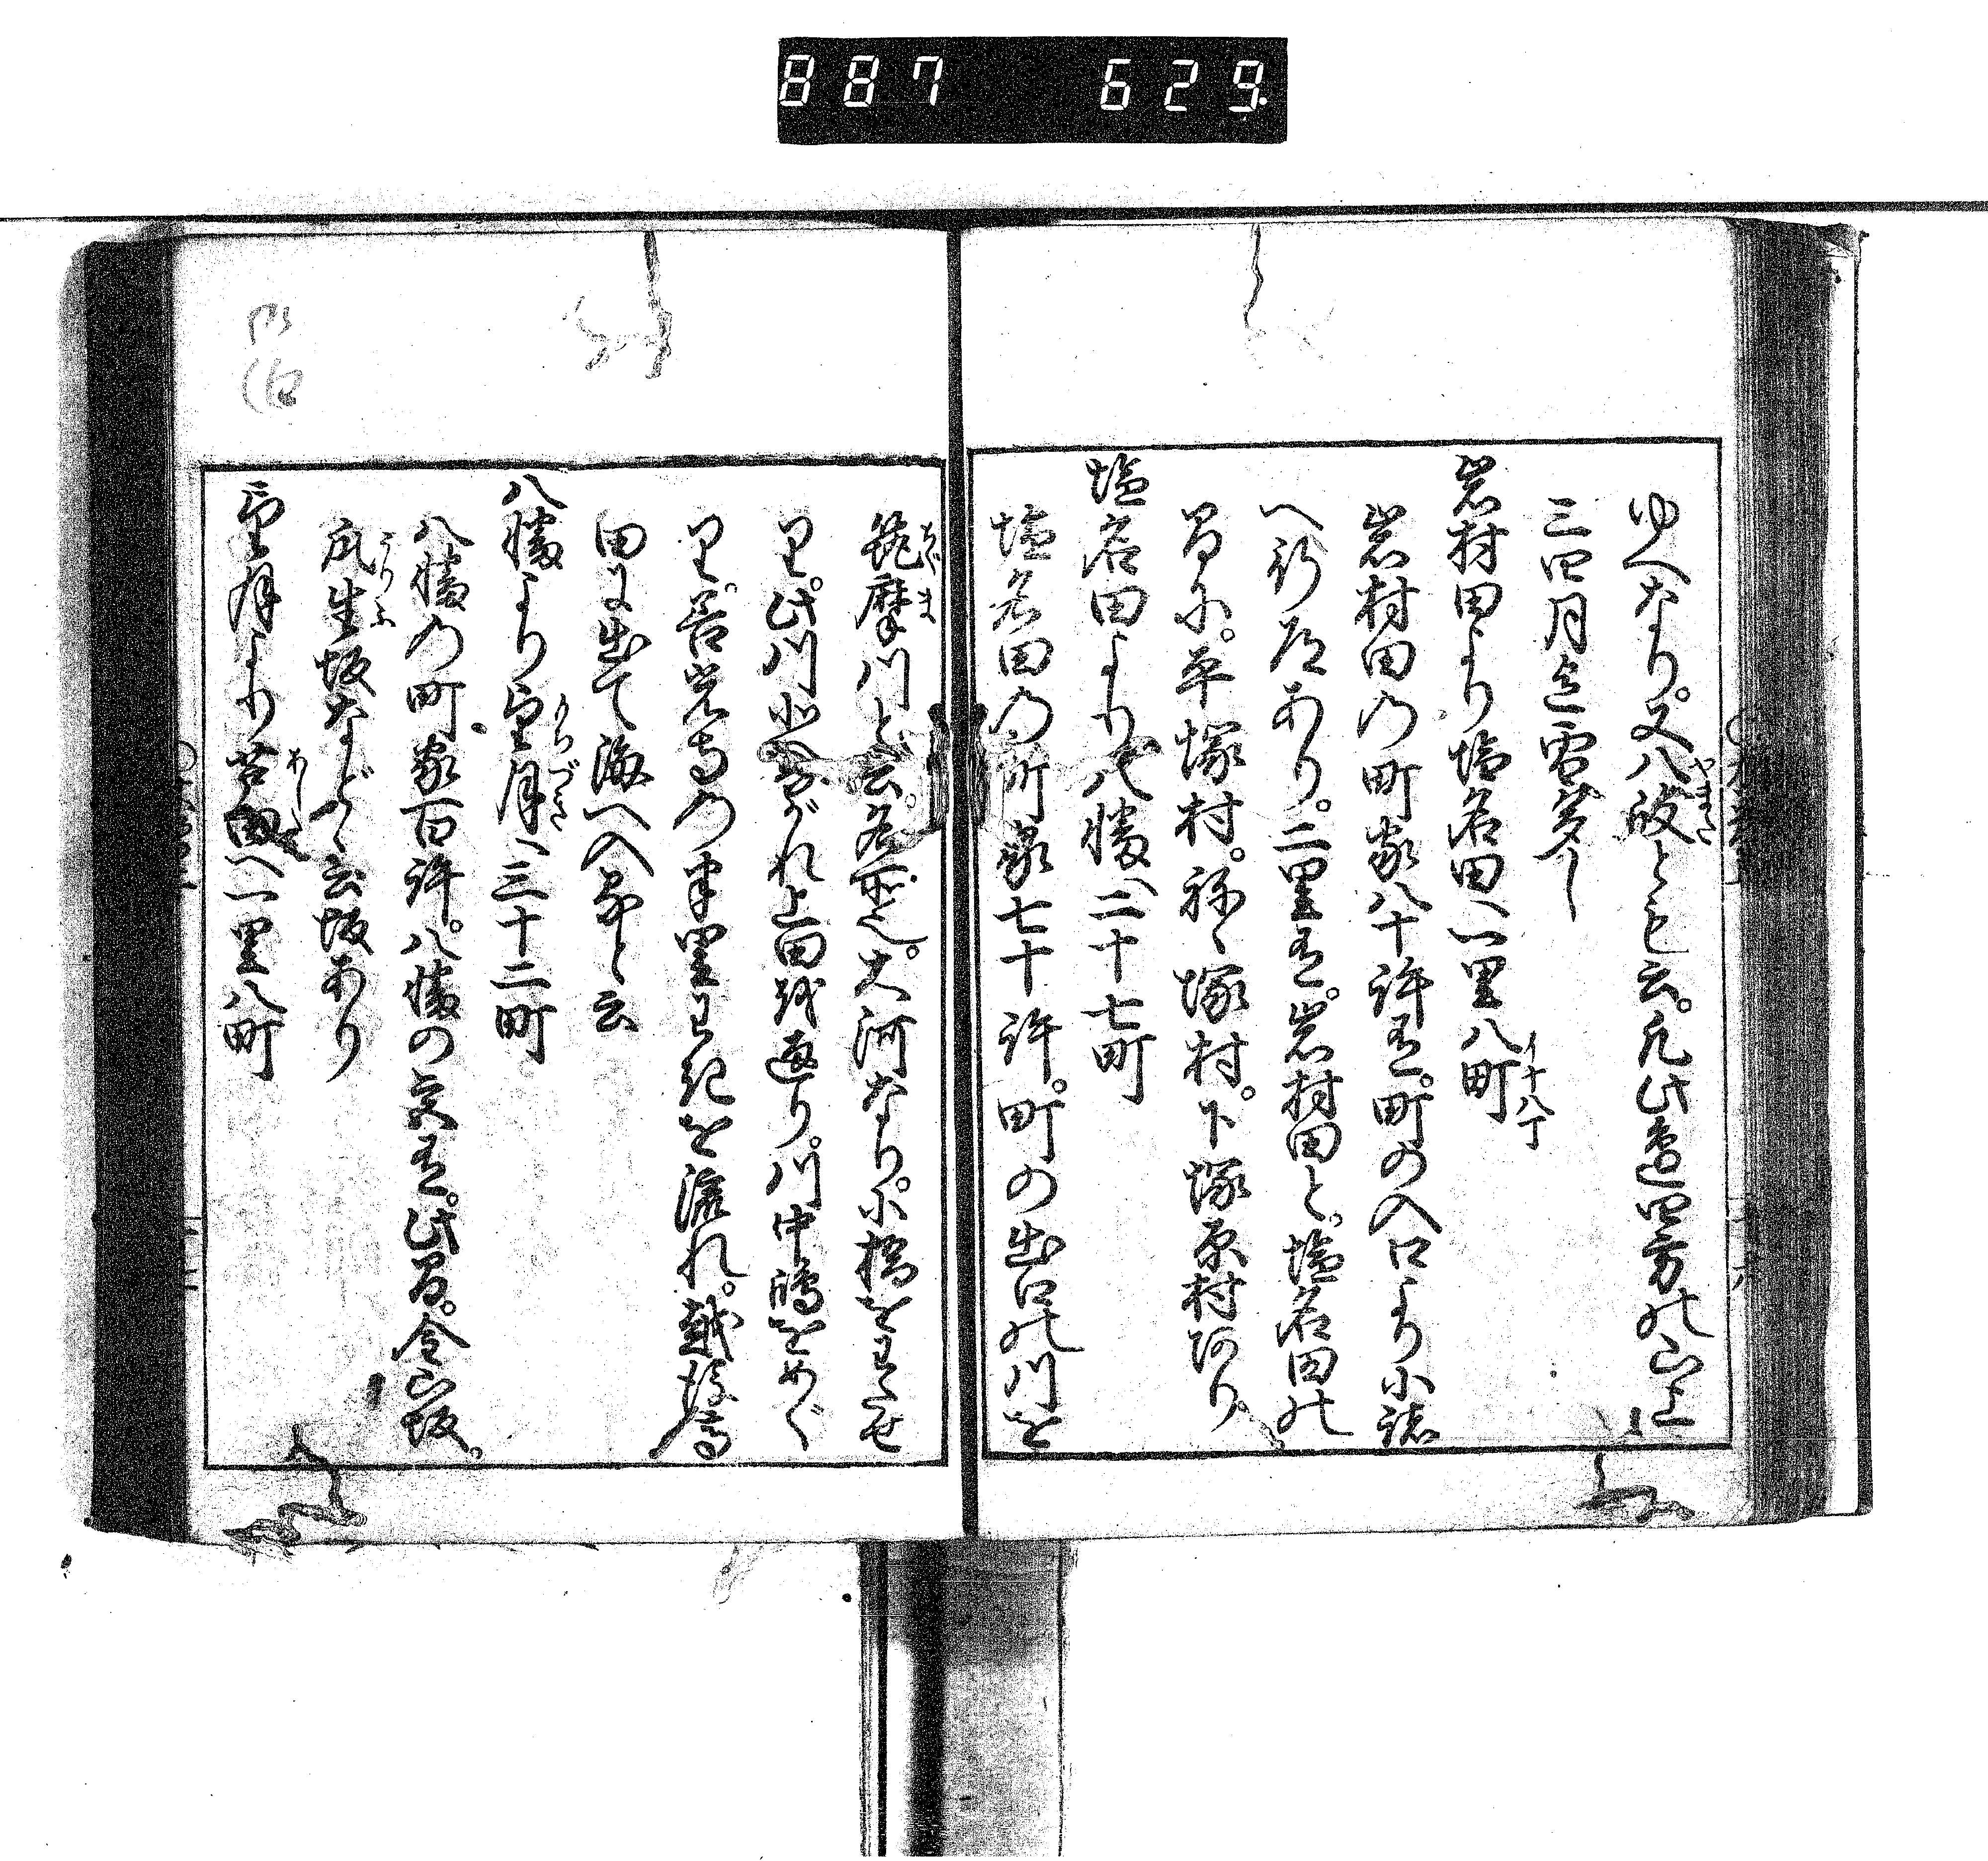 887 629
ゆへなり。又八破とも云。凡此邉四方の山上
三四月迄雪多し
岩村田より塩名田へ一里八町
イ十八丁
岩村田の町家八十許有。町の入口より小諸
へ行道あり。二里有。岩村田と。塩名田の
間に。平塚村。祢々塚村。下塚原村阿り
塩名田より八幡へ二十七町
塩名田の町家七十許。町の出口の川を
筑摩川と云。名所也。大河なり。小橋をわたせ
り。此川水ながれ上田城邊り。川中嶋をめぐ
り。善光寺の半里わきを流れ。越後高
田に出て海へ入る也と云
八幡より望月へ三十二町
八幡の町家百許。八幡の宮有。此間。金山坂。
瓜生坂など云坂あり
望月より芦田へ一里八町